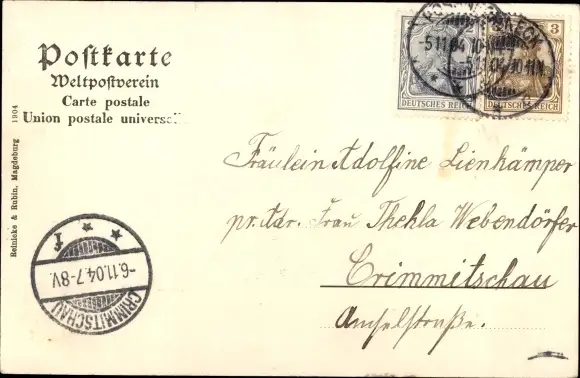 Postkarte
Weltpostverein
Carte postale
Union postale universelle
Reinicke & Rubin, Magdeburg 1904
2
3
DEUTSCHES REICH
DEUTSCHES REICH
-5.11.04.10-11.V.
Fräulein Adolfine Lienkämper
pr. Adr. Frau Thekla Webendörfer
Crimmitschau
Amselstraße.
-6.11.04.7-8V.
CRIMMITSCHAU
f